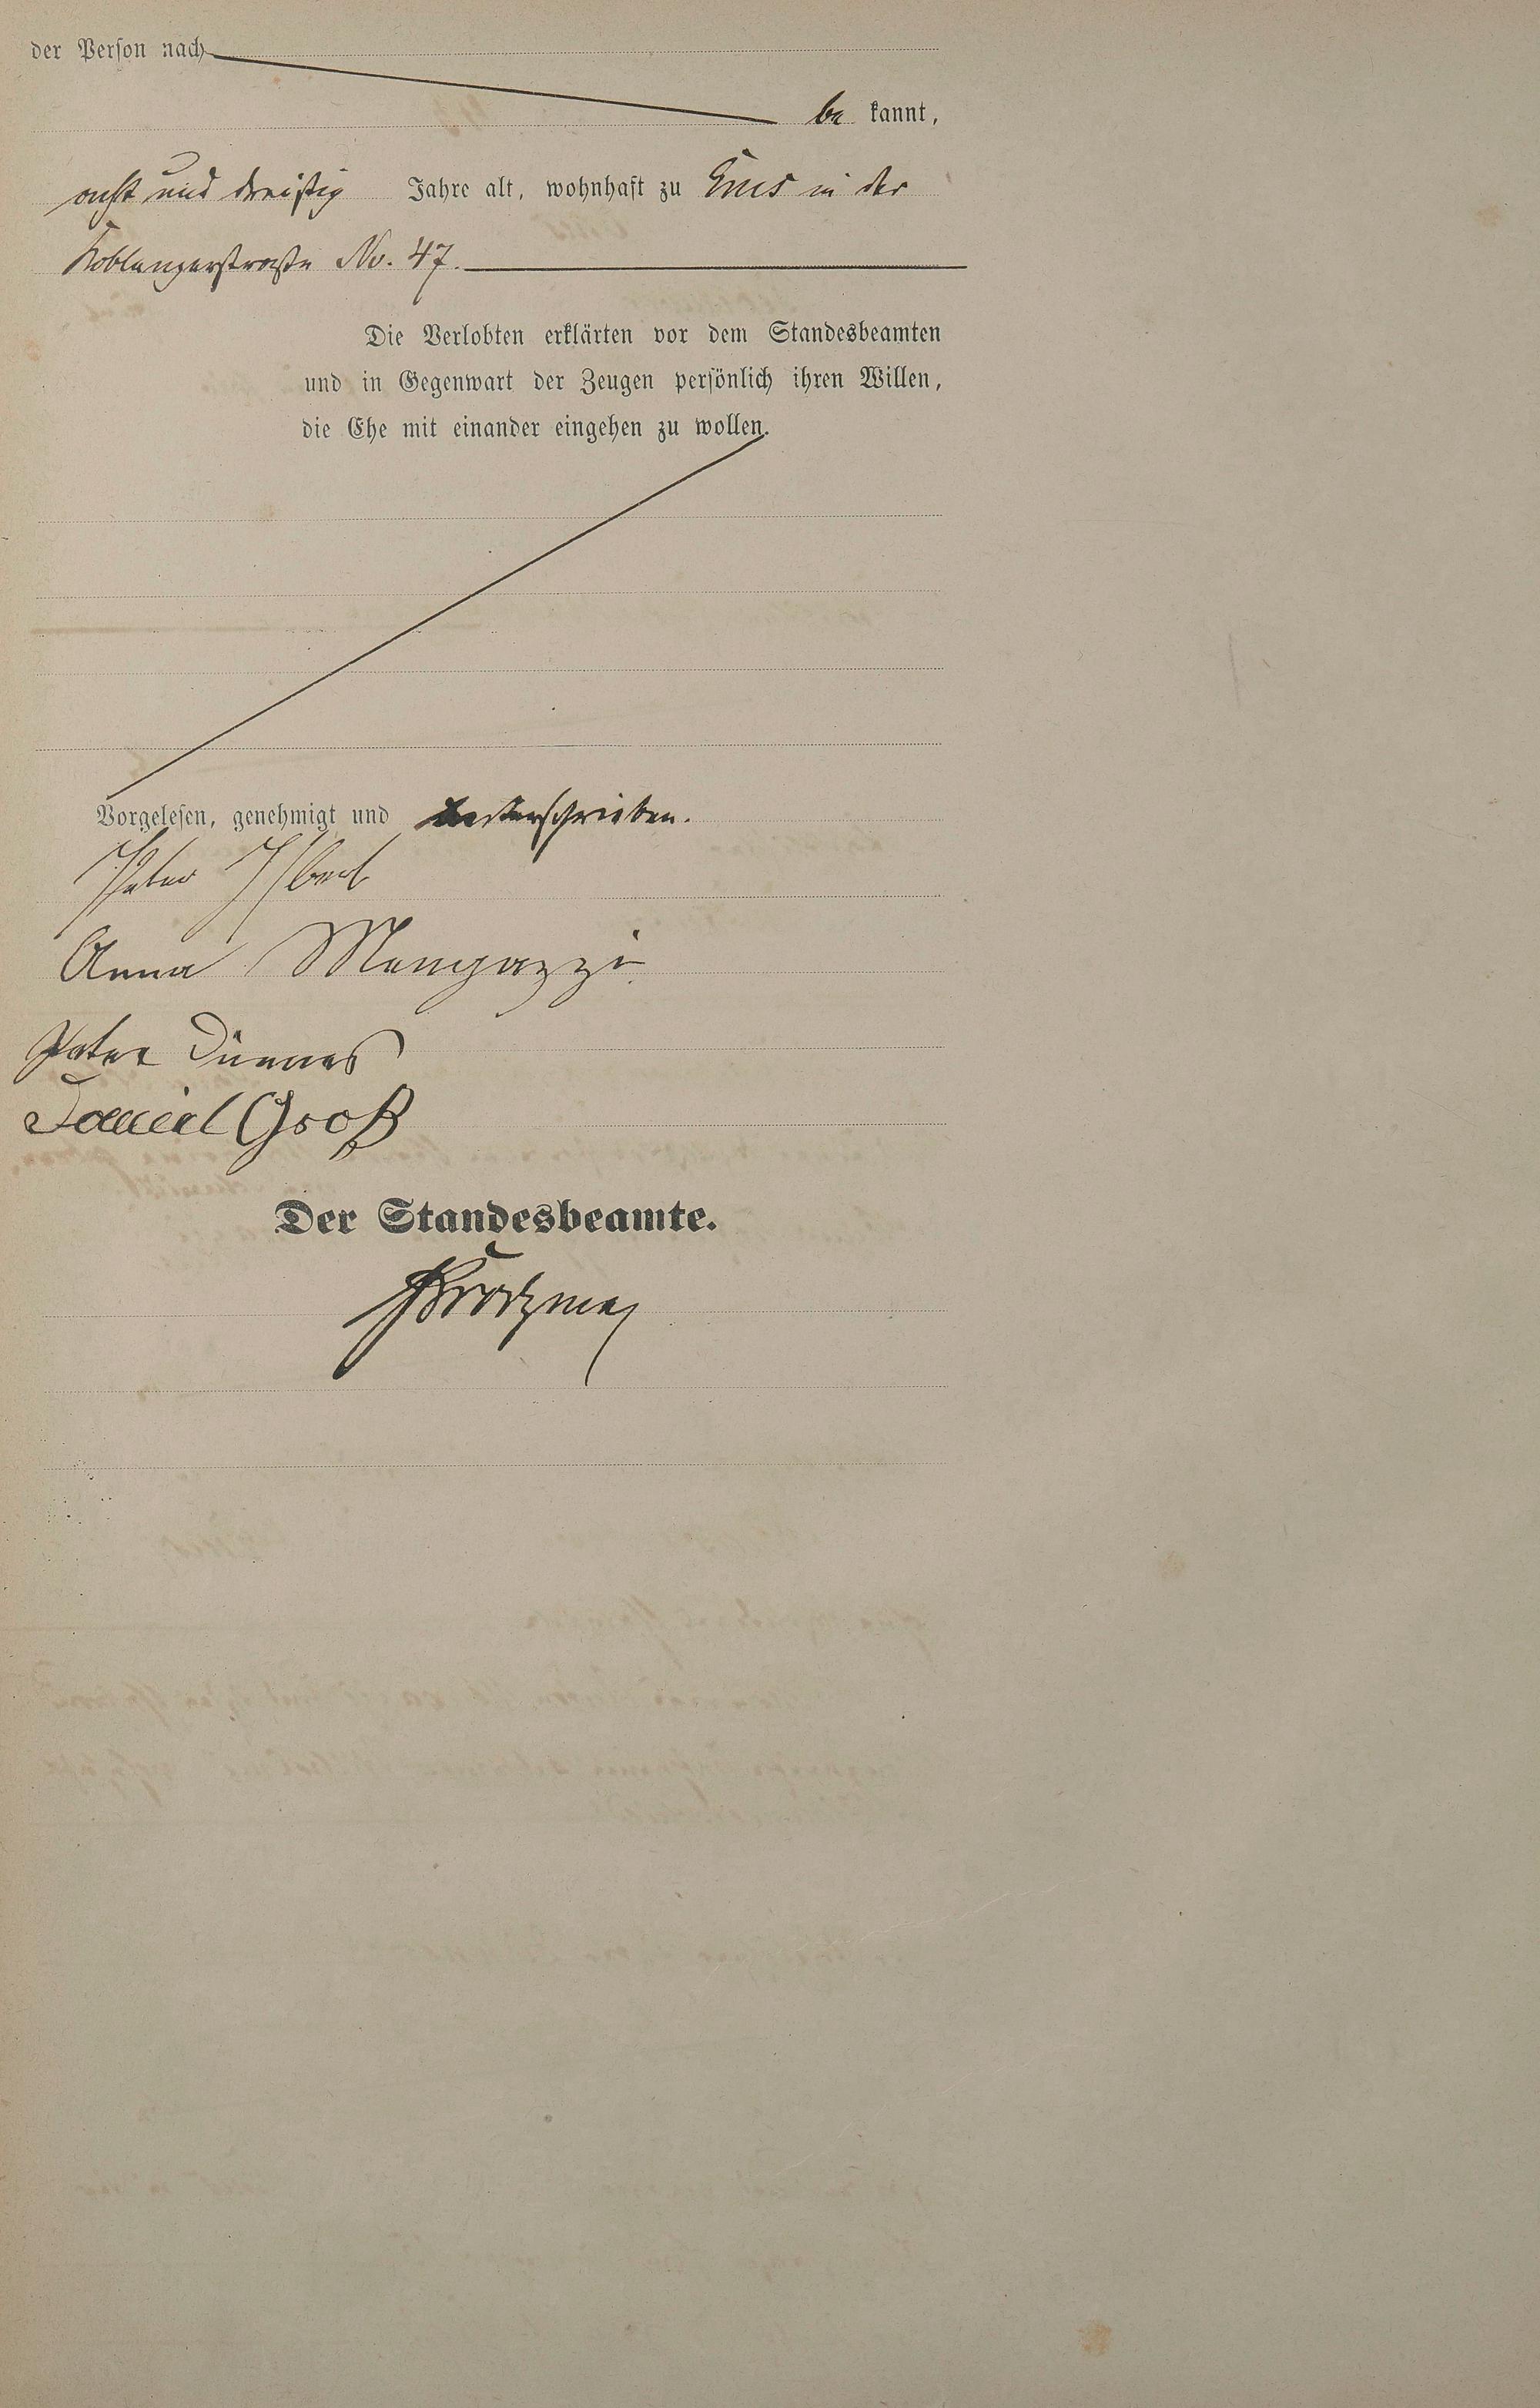 der Person nach
be kannt,
acht und dreißig Jahre alt, wohnhaft zu Ems in der
Koblenzerstraße No. 47.
Die Verlobten erklärten vor dem Standesbeamten
und in Gegenwart der Zeugen persönlich ihren Willen,
die Ehe mit einander eingehen zu wollen.
Vorgelesen, genehmigt und unterschrieben.
Peter
Anna Mengazzi
Peter
Daniel Groß
Der Standesbeamte.